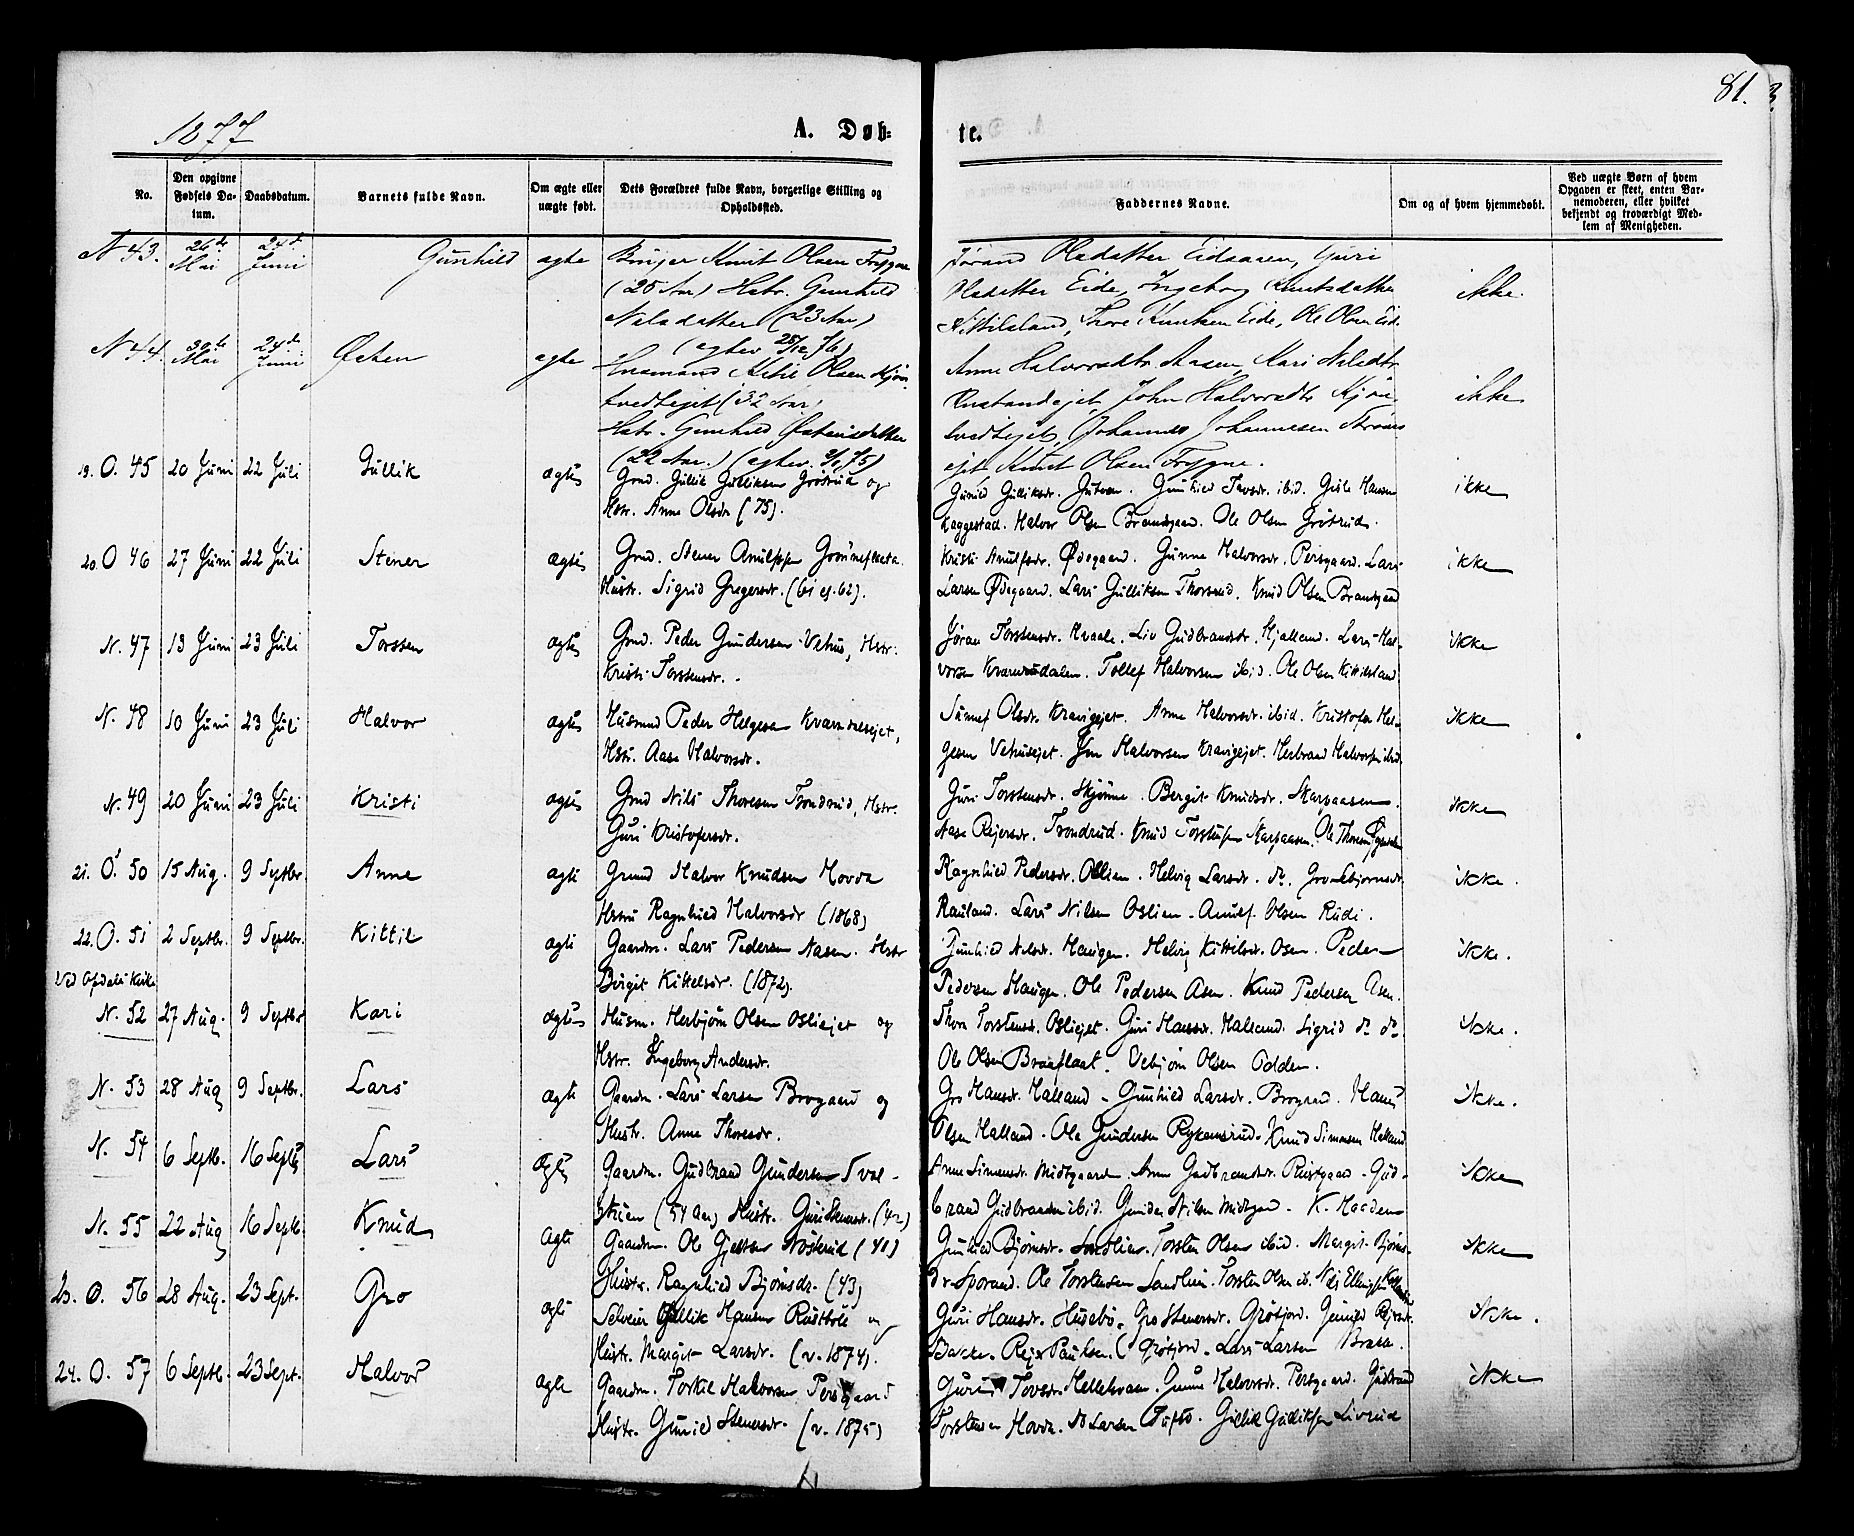 81.
1877
A. Døb-
te.
No.
Den opgivne Fødsels Datum.
Daabsdatum.
Barnets fulde Navn.
Om ægte eller uægte født.
Dets Forældres fulde Navn, borgerlige Stilling og Opholdssted.
Faddernes Navne.
Om og af hvem hjemmedøbt.
Ved uægte Børn af hvem Opgaven er skeet, enten Barnemoderen, eller hvilket bekjendt og troværdigt Medlem af Menigheden.
N 43. 26de Mai 24de Juni Gunhild ægte Knut Olsen Frygne
(25 Aar) Hstr. Gunhild
Nilsdatter (23 Aar)
Jørand Olsdatter Eidsaasen, Guri
Olsdatter Eide, Ingeborg Knutsdatter
Kittilsland, Thore Knutsen Eide, Ole Olsen Eide
ikke.
N 44. 30te Mai 24de Juni Østen ægte Husmand Ketil Olsen
(32 Aar)
Hstr. Gunhild Østensdatter
(22 Aar.)
Anne Halvorsdtr Aasen, Kari Nilsdtr
John Halvorsdtr
Johannes Johannesen
Knut Olsen Frygne.
ikke
19. O. 45 20 Juni 22 Juli Gullik ægte Grmd. Gullik Gulliksen Grøtrud og
Hstr. Anne Olsdr (75).
Gunild Gulliksdr. Gunhild Tovsdr. ibid. Gisle Hansen
Kaggestad. Halvor Olsen Brandsgaard. Ole Olsen Grøtrud.
ikke
20. O 46 27 Juni 22 Juli Stener ægte Grmd. Stener Arnulfsen
Hustr. Sigrid Gregersdr. (61 ej. 62).
Kristi Arnulfsdr. Ødegaard. Gunne Halvorsdr. Persgaard. Lars
Larsen Ødegaard. Lars Gulliksen Thorsrud. Knud Olsen Brandsgaard
ikke
N. 47 13 Juni 23 Juli Torsten ægte Grmd. Peder Gundersen Vehus, Hstr.
Kristi Torstensdr.
Jøran Torstensdr. Hvaale. Liv Gudbrandsdr. Hjalland. Lars Hal-
vorsen Kvarnedalen. Tollef Halvorsen ibid. Ole Olsen Kittilsland
ikke
N. 48 10 Juni 23 Juli Halvor ægte Husmnd Peder Helgesen Kvarndalsejet,
Hstr. Aase Halvorsdr.
Sunnef Olsdr. Kravigejet. Anne Halvorsdr. ibid. Kristofer Hel-
gesen Vehusejet. Jon Halvorsen Kravigejet. Herbrand Halvorsen ibid.
ikke
N. 49 20 Juni 23 Juli Kristi ægte Grmd Nils Thoresen Trondrud, Hstr.
Guri Kristofersdr.
Guri Torstensdr. Skjønne. Bergit Knudsdr. Skarpaasen.
Aase Rejersdr. Trondrud. Knud Torstensen Skarpaasen. Ole Thoresen
ikke
21. O. 50 15 Aug. 9 Septbr. Anne ægte Grmd Halvor Knudsen Hovda
Hstru Ragnhild Halvorsdr (1868)
Ragnhild Pedersdr. Oslien. Helvig Larsdr. do. Gro
Rauland. Lars Nilsen Oslien. Arnulf Olsen Rudi.
ikke.
22. O. 51 2 Septbr. 9 Septbr. Kittil ægte Gaardm. Lars Pedersen Aasen. Hstr
Birgit Kittelsdr. (1872).
Gunhild Nilsdr. Haugen. Helvig Kittilsdr. Osen. Peder
Pedersen Haugen. Ole Pedersen Asen. Knud Pedersen Asen.
ikke.
Ved Opdals Kirke
N. 52 27 Aug. 9 Septbr Kari ægte Husm. Herbjørn Olsen Osliejet og
Hstr. Ingeborg Andersdr.
Thora Torstensdr. Osliejet. Guri Hansdr. Halland. Sigrid do do
Ole Olsen Braaflaat. Vebjørn Olsen Odden.
ikke.
N. 53 28 Aug 9 Septbr. Lars ægte Gaardm. Lars Larsen Brogaard og
Hustr. Anne Thoresdr.
Gro Hansdr. Halland. Gunhild Larsdr. Brogaard. Hans
Olsen Halland. Ole Gundersen Rykensrud. Knud Simonsen Halland
ikke.
N. 54 6 Septb. 16 Septb Lars ægte Gaardm. Gudbrand Gundersen
(54 Aar) Hustr. Guri Stenersdr. (42)
Anne Simonsdr. Midtgaarden. Anne Gudbrandsdr. Rustgaard. Gud-
brand Gudbrandsen ibid. Gunder Nilsen Midtgard. K. Horden
ikke
N. 55 22 Aug 16 Septb. Knud ægte Gaardm. Ole Gjertsen Nøsterud (41)
Hustr. Ragnhild Bjørnsdr. (43)
Gunhild Bjørnsdr. Sandlien. Torsten Olsen ibid. Margit Bjørns-
dr Sporand. Ole Torstensen Sandlien. Torsten Olsen ib. Nils Ellingsen
ikke
23. O. 56 28 Aug. 23 Sept. Gro ægte Selveier Gullik Hansen Rustbøle og
Hustr. Margit Larsdr. (v. 1874).
Guri Hansdr. Husebø. Gro Stenersdr. Grøtjord. Gunild Rejersdr.
Bakke. Rejer Paulsen Grøtjord. Lars Larsen Braka.
ikke.
24. O. 57 6 Septb. 23 Sept. Halvor ægte Gaardm. Torkil Halvorsen Persgaard
Hustr. Gunild Stenersdr. (v. 1875)
Guri Tovsdr. Gunne Halvorsdr. Persgaard. Gudbrand
Torstensen Hovda. Larsen Tufto. Gullik Gulliksen Livrud
ikke